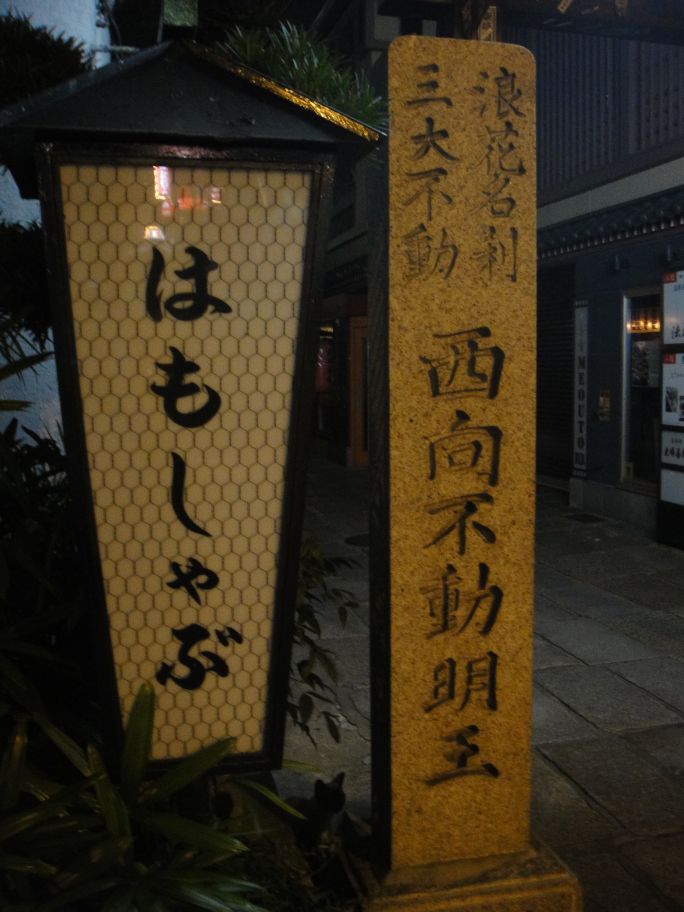 はもしゃぶ
浪花名刹
三大不動
西向不動明王
MEOUTO